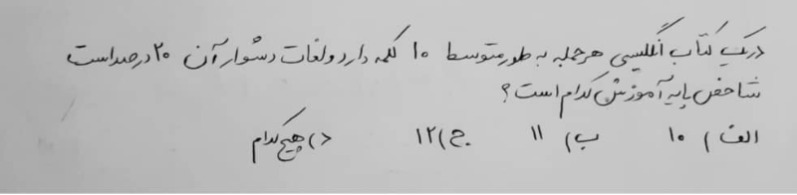 در یک کتاب انگلیسی هر جمله به طور متوسط ۱۰ کلمه دارد ولغات دشوار آن ۲۰ درصد است
شاخص پایه آموزش کدام است؟
الف) ۱۰ ب) ۱۱ ج) ۱۲ د) هیچ کدام